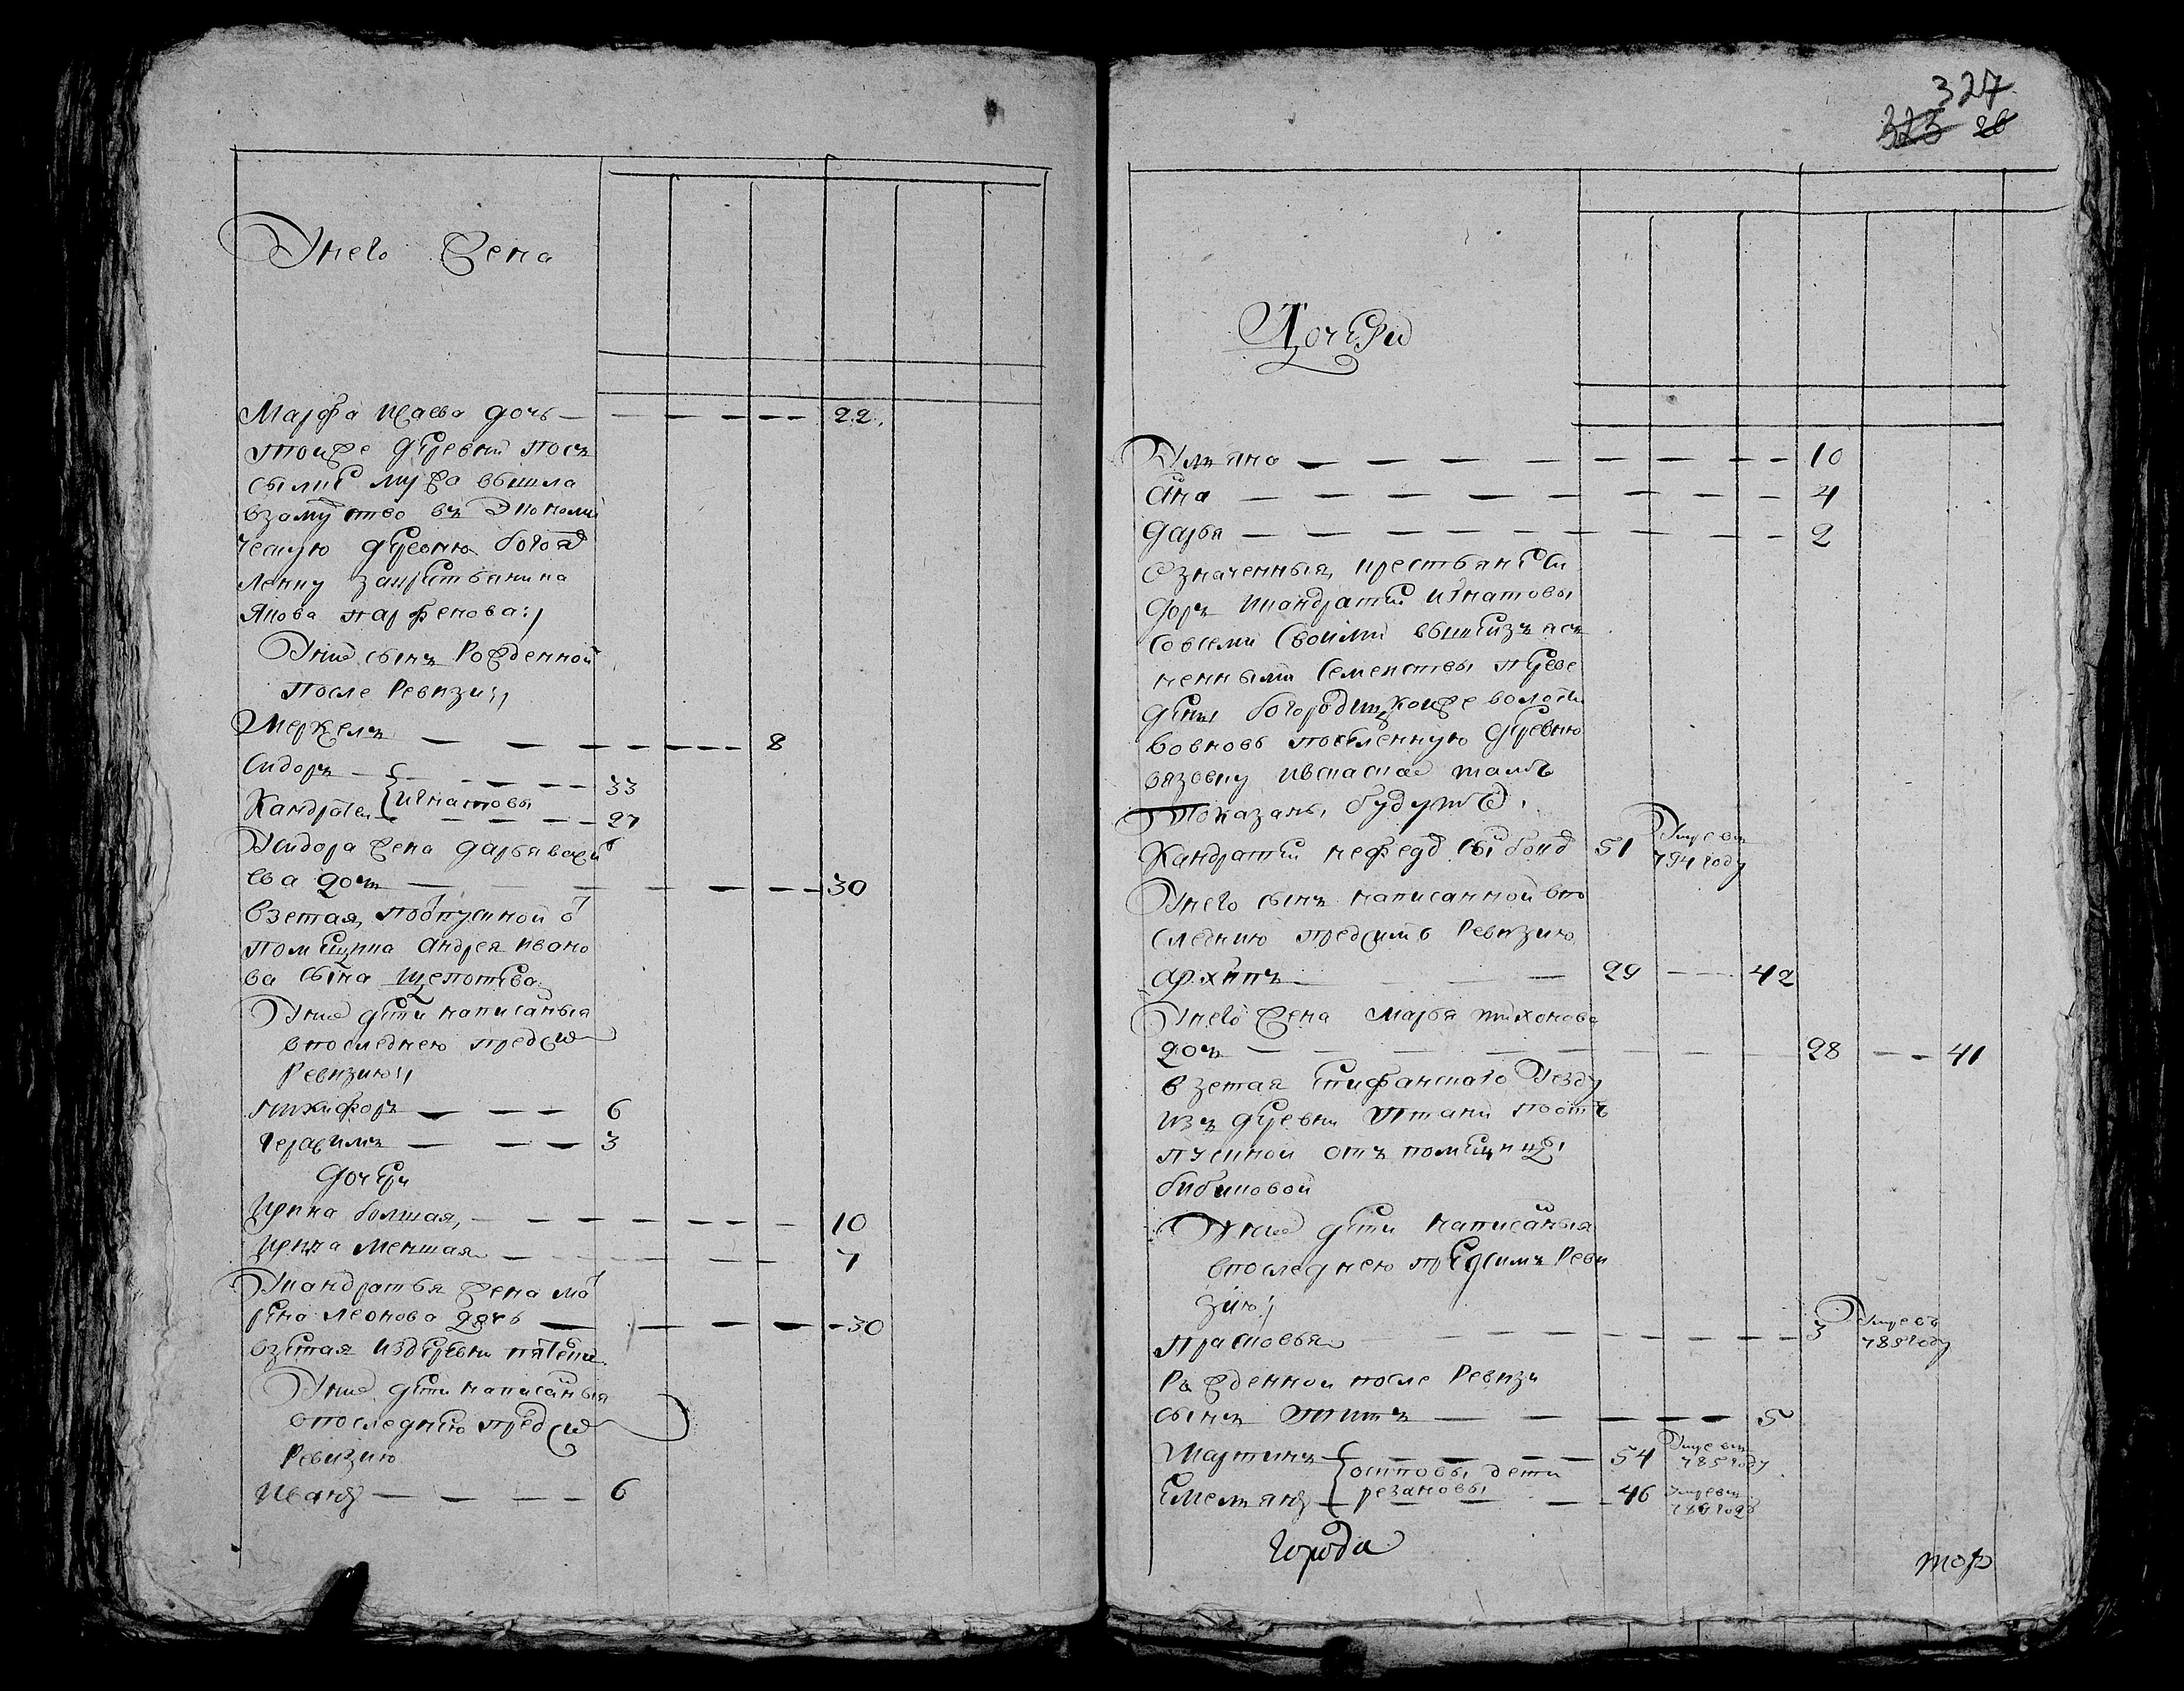 У него жена
Марфа исаева дочь — 22.
тоиже деревни после
взамужство въ Экономи
ческую деревню богояв
ленку закрестьянина
Якова парфенова:/
У ние сынъ рожденной
после ревизи:/
Меркелъ — 8
Сидоръ — 33
игнатовы
Кандратеи — 27
Усидора жена дарья васил
ева дочь — 30
взетая, поотпускной от
помещика андрея ивано
ва сына щепотева
У ние дети написаныя
впоследнею пред сим
ревизию:/
Никифоръ — 6
герасимъ — 3
дочери
Ирина болшая, — 10
Ирина меншая — 7
Укандратья жена ма
рина леонова дочь — 30
взетая издеревни
У ние дети написаныя
впоследнею пред сим
Ревизию
Иванъ — 6
327
323 26
Дочери
Ульяна — 10
Ана — 4
дарья — 2
означенныя, крестьяне си
доръ икандратеи игнатовы
совсеми своими вышеизъяс
ненными семенствы переве
дены богородицкоиже волости
вовновь поселенную деревню
вязовку ивсказке тамъ
показаны, будутъ.
Кандратии нефедов сын 51 Умре въ
794 году
Унего сынъ написанной впо
следнию предсимъ ревизию
архипъ — 29 — 42
Унего жена марья тихонова
дочь — 28 — 41
взетая епифанского уезду
изъ деревни поотъ
пускной отъ помещицы
бибиковой
У ние дети написаныя
впоследнею предсимъ реви
зию:/
прасковья — 3 Умре въ
785 году
Рожденной после ревизи
сынъ титъ — 5
Мартинъ — 54 Умре въ
785 году
осиповы дети
резановы
емельянъ — 46 Умре въ
году
города